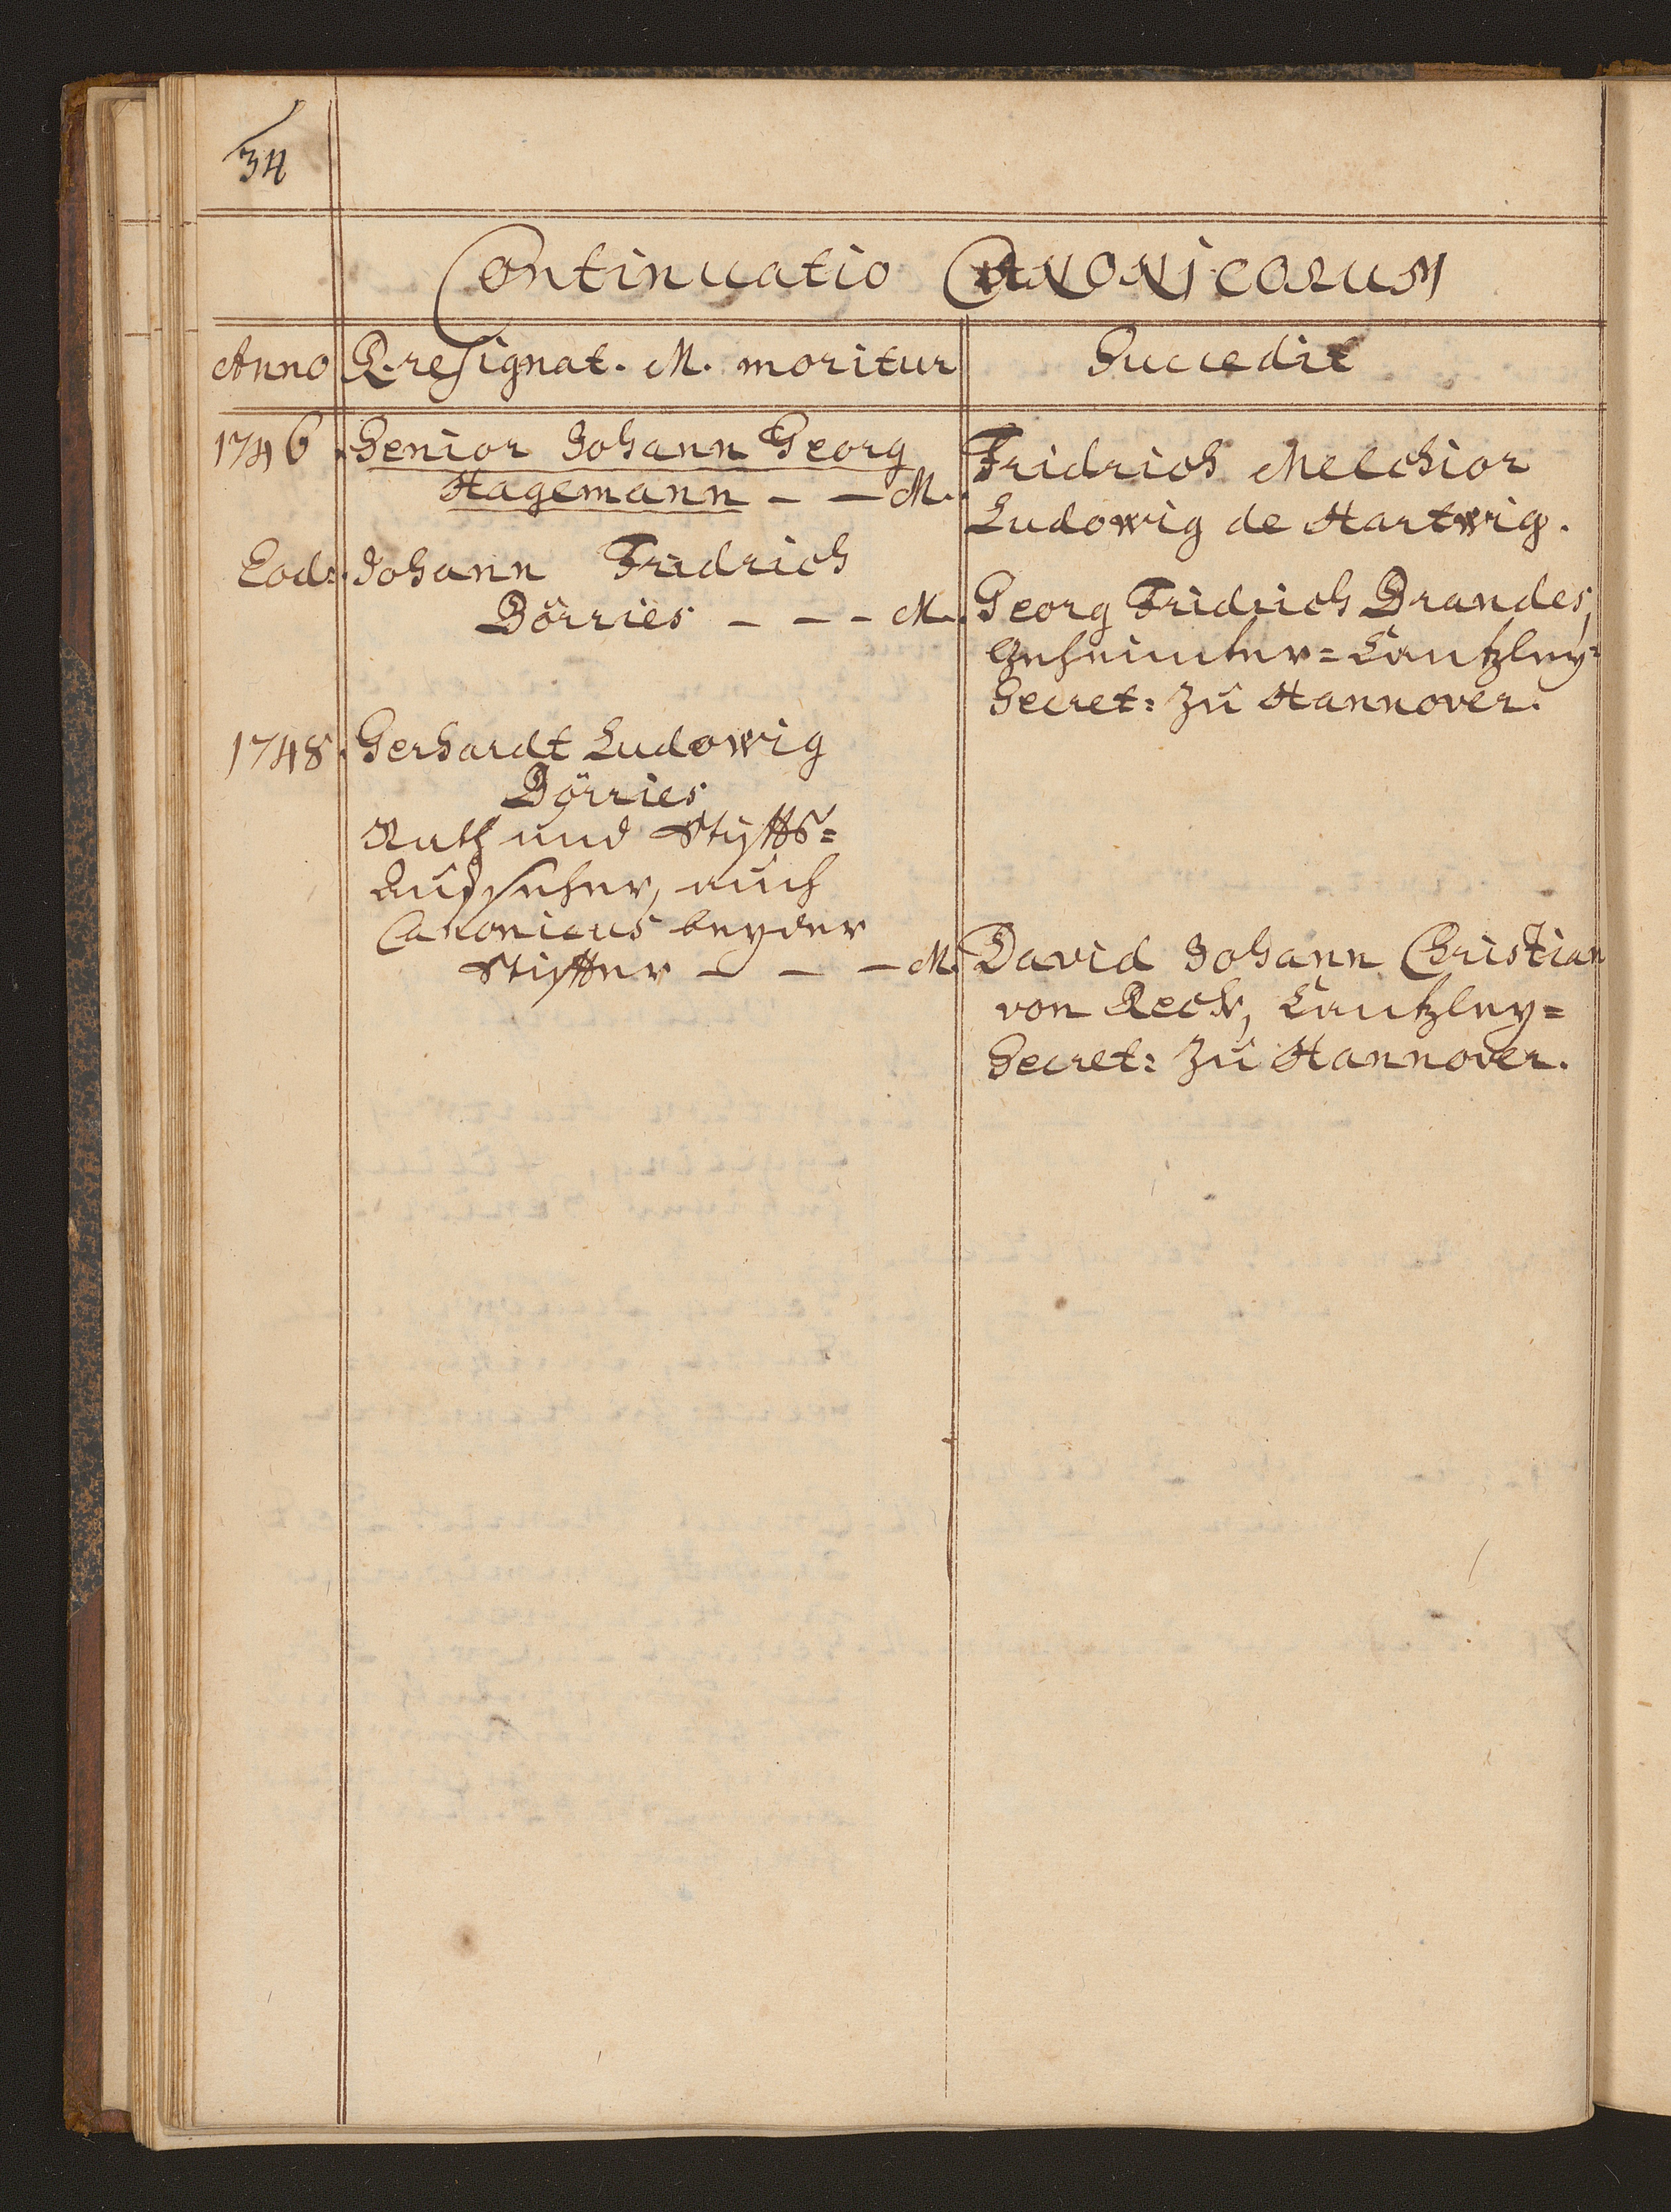 34
Continuatio CANONicorum
Anno R. resignat. M. moritur Succedit
1746. Senior Johann Georg
Hagemann - - M.
Fridrich Melchior
Ludowig de Hartwig.
Eod: Johann Fridrich
Börries - - - M.
Georg Fridrich Brandes,
Geheimter-Cantzley-
Secret: zu Hannover.
1748. Gerhardt Ludowig
Börries
Rath und Stiffts-
Aufseher, auch
Canonicus beyder
Stiffter - - - M.
David Johann Christian
von Reck, Cantzley-
Secret: zu Hannover.